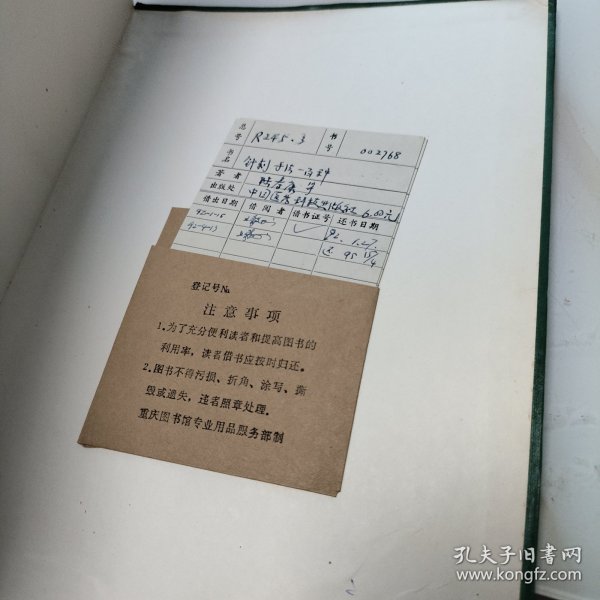 总号 R245.3 书号 002768
书名 针刺手法一百种
著者 陆寿康 等
出版处 中国医药科技出版社 6.00元
借出日期 借阅者 借书证号 还书日期
92-1-15 92.1.27.
92-4-13
登记号№
注意事项
1.为了充分便利读者和提高图书的
利用率，读者借书应按时归还。
2.图书不得污损、折角、涂写、撕
毁或遗失，违者照章处理。
重庆图书馆专业用品服务部制
孔夫子旧书网
www.kongfz.com